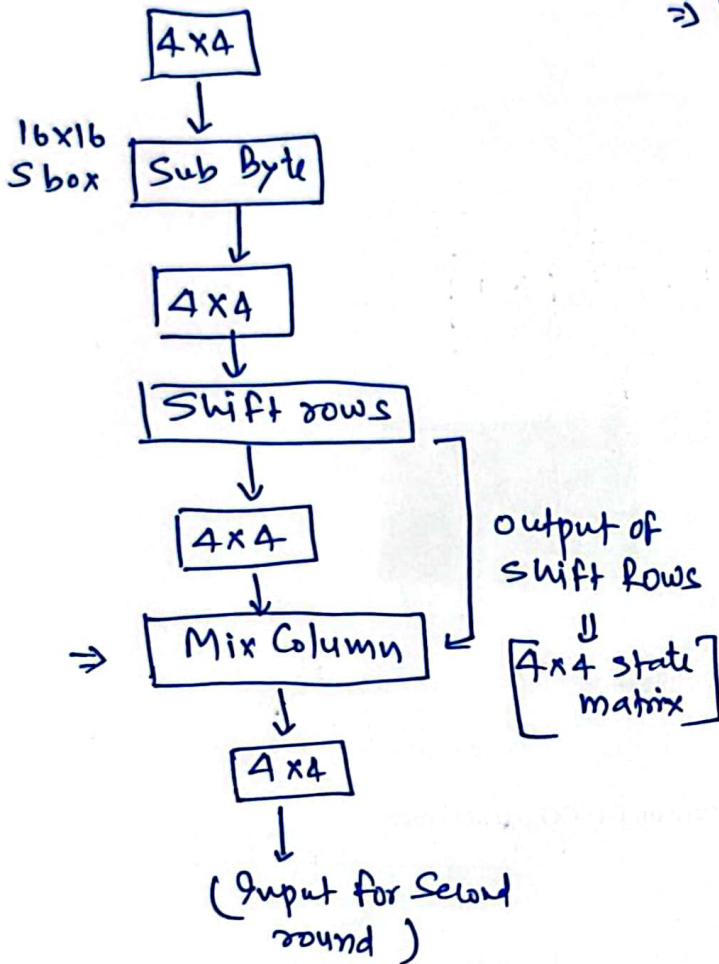 ⇒
4×4
16×16
S box
Sub Byte
4×4
Shift rows
4×4
output of
Shift Rows
⇓
[4×4 state
matrix]
⇒ Mix Column
4×4
(Input for Second
round)